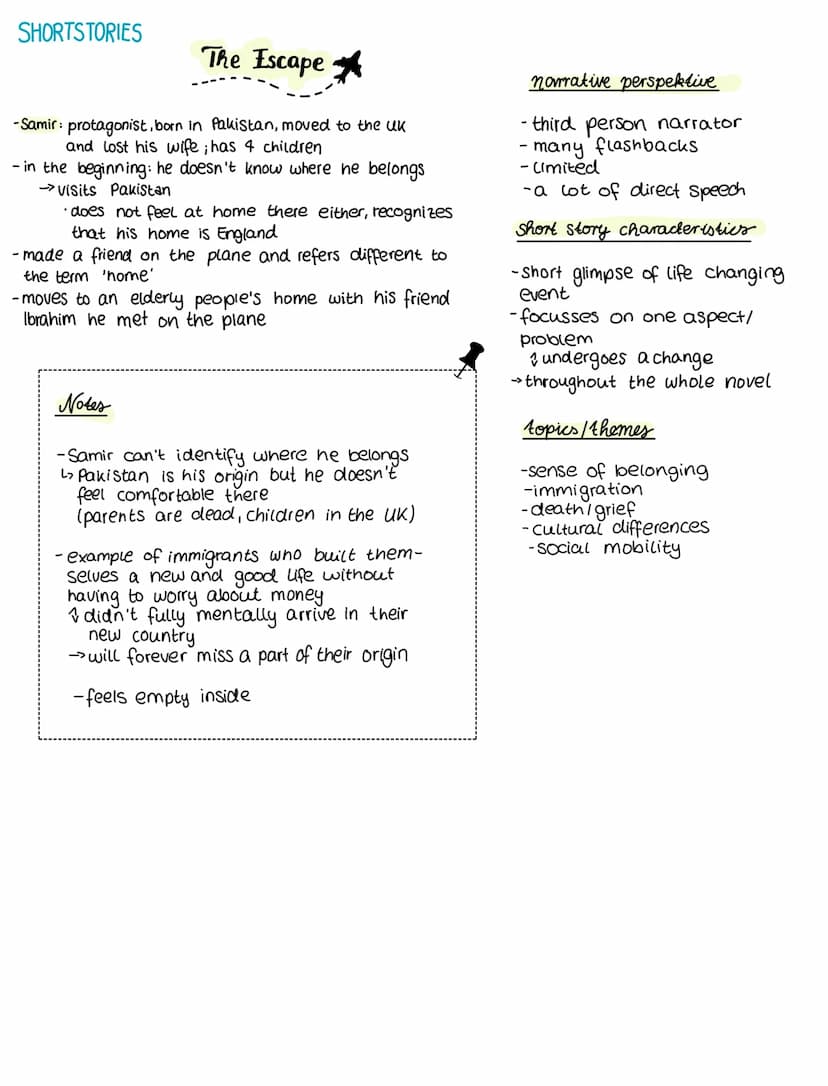 SHORTSTORIES
The Escape
-Samir: protagonist, born in Pakistan, moved to the UK
and lost his wife; has 4 children
- in the beginning: he doesn't know where he belongs
→ visits Pakistan
· does not feel at home there either, recognizes
that his home is England
- made a friend on the plane and refers different to
the term 'home'
- moves to an elderly people's home with his friend
Ibrahim he met on the plane
Notes
- Samir can't identify where he belongs
↳ Pakistan is his origin but he doesn't
feel comfortable there
(parents are dead, children in the UK)
- example of immigrants who built them-
selves a new and good life without
having to worry about money
↯ didn't fully mentally arrive in their
new country
→ will forever miss a part of their origin
- feels empty inside
narrative perspektive
- third person narrator
- many flashbacks
- limited
- a lot of direct speech
short story characteristics
- short glimpse of life changing
event
- focusses on one aspect/
problem
↯ undergoes a change
→ throughout the whole novel
topics/themes
- sense of belonging
- immigration
- death/grief
- cultural differences
- social mobility